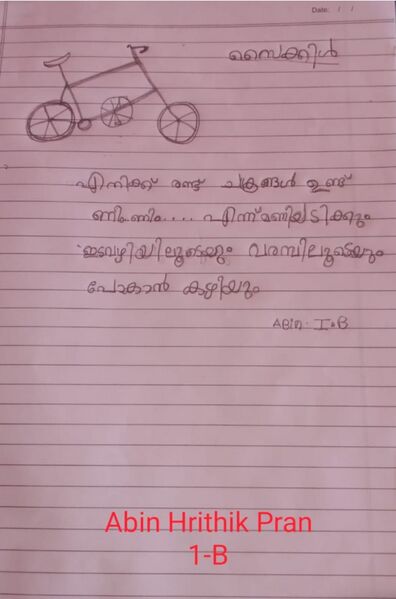 Date: / /
സൈക്കിൾ
എനിക്ക് രണ്ട് ചക്രങ്ങൾ ഉണ്ട്
ണിം.ണിം.... എന്ന് മണിയടിക്കും
ഇടവഴിയിലൂടെയും വരമ്പിലൂടെയും
പോകാൻ കഴിയും
Abin. I.B
Abin Hrithik Pran
1-B